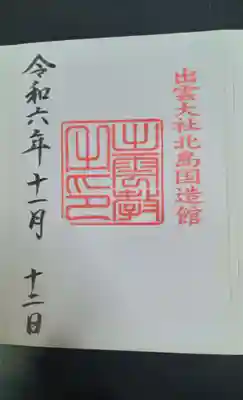 出雲大社北島国造館
出雲教
之印
令和六年十一月 十二日